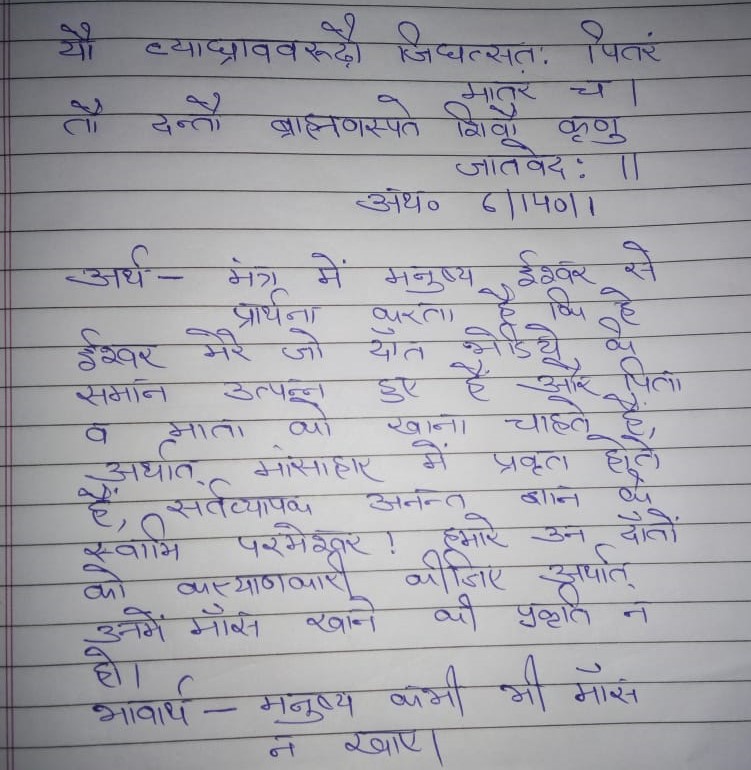 यौ व्याघ्राववरूढौ जिघत्सत: पितरं
मातरं च |
तौ दन्तौ ब्राह्मणस्पते शिवौ कृणु
जातवेद: ||
अथ० 6|140|1
अर्थ - मंत्र में मनुष्य ईश्वर से
प्रार्थना करता है कि हे
ईश्वर मेरे जो दाँत भेडिये के
समान उत्पन्न हुए हैं और पिता
व माता को खाना चाहते हैं,
अर्थात् मांसाहार में प्रवृत होते
हैं, सर्वव्यापक अनन्त ज्ञान के
स्वामि परमेश्वर! हमारे उन दाँतों
को कल्याणकारी कीजिए अर्थात्
उनमें माँस खाने की प्रकृति न
हो।
भावार्थ - मनुष्य कभी भी माँस
न खाए।